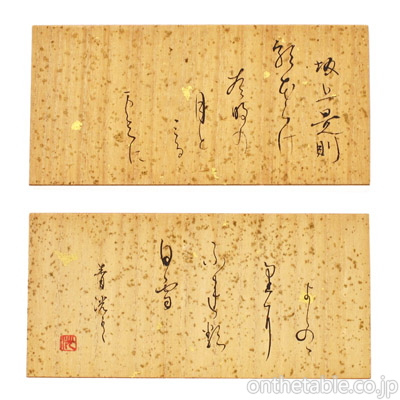 坂上是則
朝ほらけ
有明の
月と
みる
まてに
よしのゝ
里に
ふれる
白雪
onthetable.co.jp